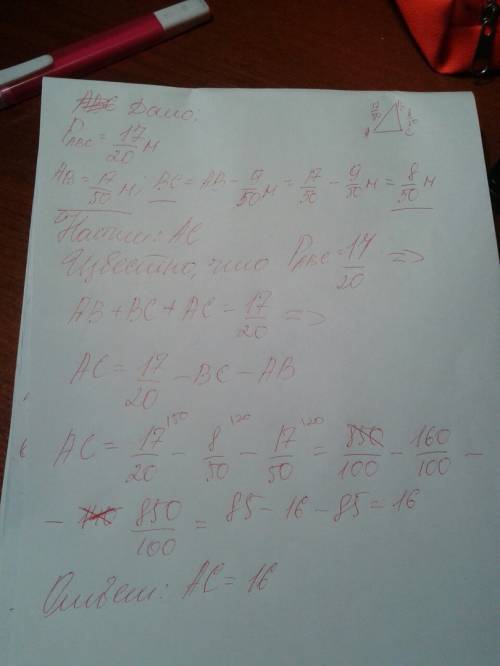 Дано:
P ABC = 17/20 м
AB = 17/50 м; BC = AB - 9/50 м = 17/50 - 9/50 м = 8/50 м
Найти: AC
Известно, что P ABC = 17/20 =>
AB + BC + AC = 17/20 =>
AC = 17/20 - BC - AB
AC = 17/20 - 8/50 - 17/50 = 850/100 - 160/100 -
- 850/100 = 85 - 16 - 85 = 16
Ответ: AC = 16